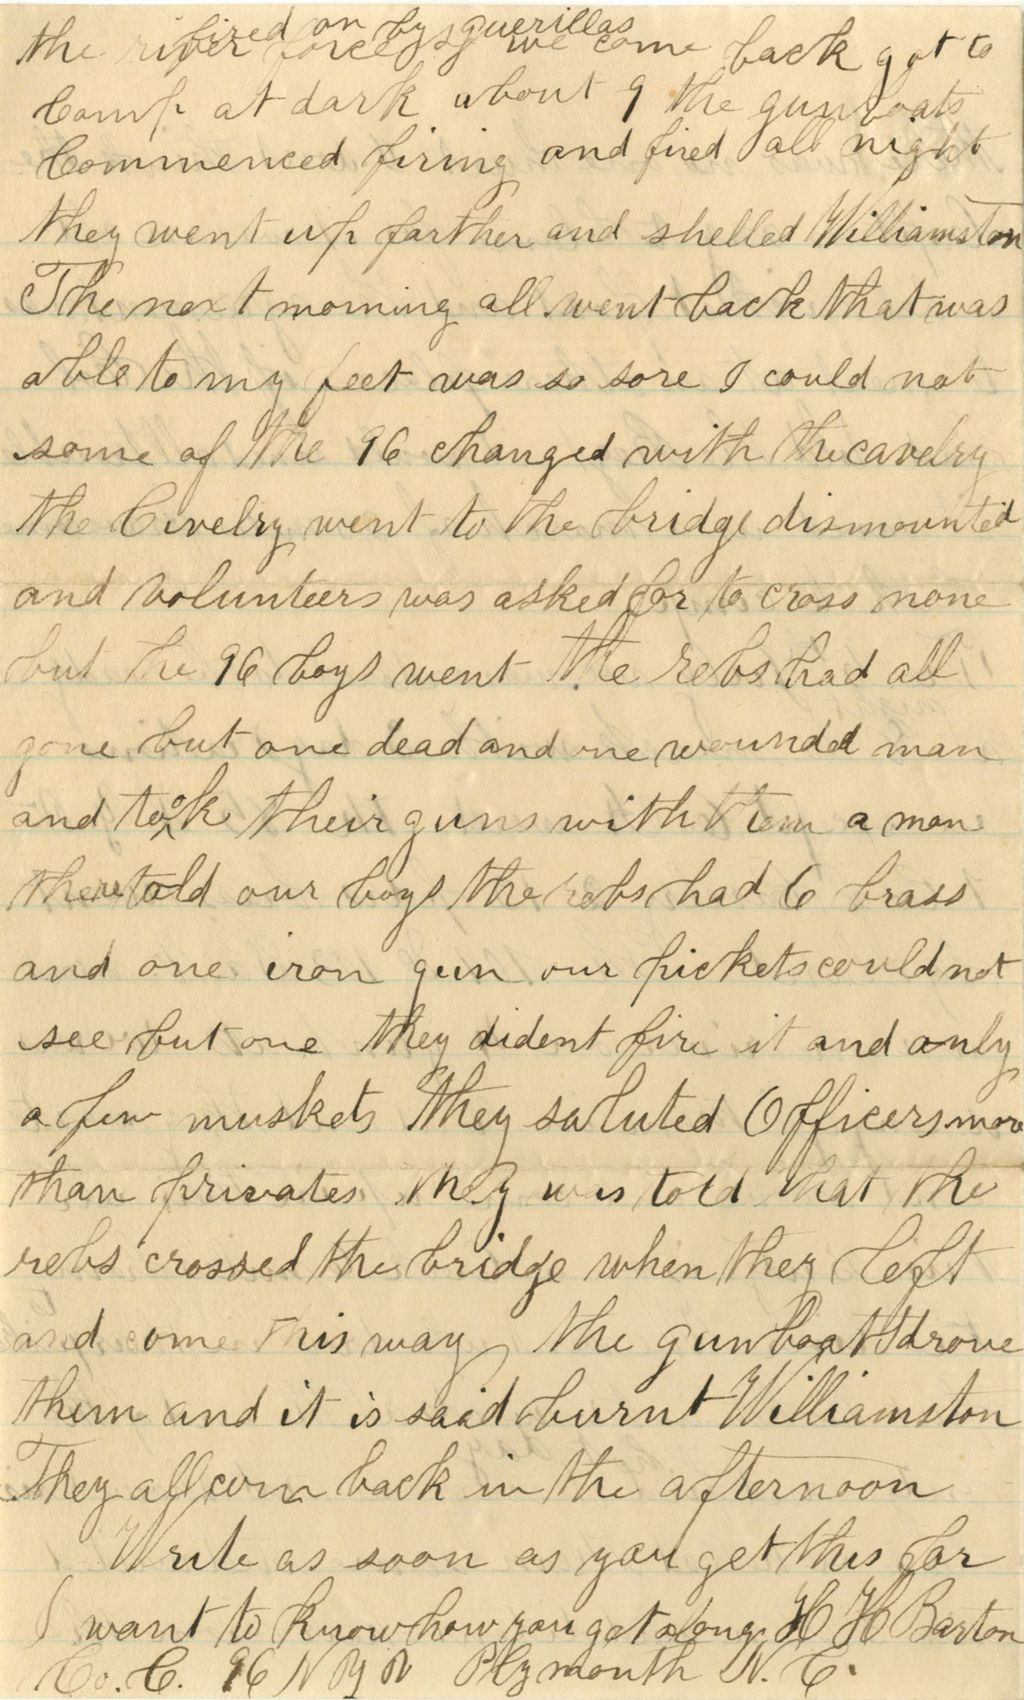 fired on by guerillas
the river force so we come back got to
Camp at dark about 9 the gunboats
Commenced firing and fired all night
they went up farther and shelled Williamston
The next morning all went back that was
able to my feet was so sore I could not
some of the 96 changed with the cavelry
the Civelry went to the bridge dismounted
and volunteers was asked for to cross none
but the 96 boys went the rebs had all
gone but one dead and one wounded man
and took their guns with them a man
there told our boys the rebs had 6 brass
and one iron gun our pickets could not
see but one they dident fire it and only
a few muskets they saluted Officers more
than privates they was told that the
rebs crossed the bridge when they left
and come this way the gunboats drove
them and it is said burnt Williamston
They all com back in the afternoon
Write as soon as you get this for
I want to know how you get along H H Barton
Co. C. 96 N Y V Plymouth N. C.